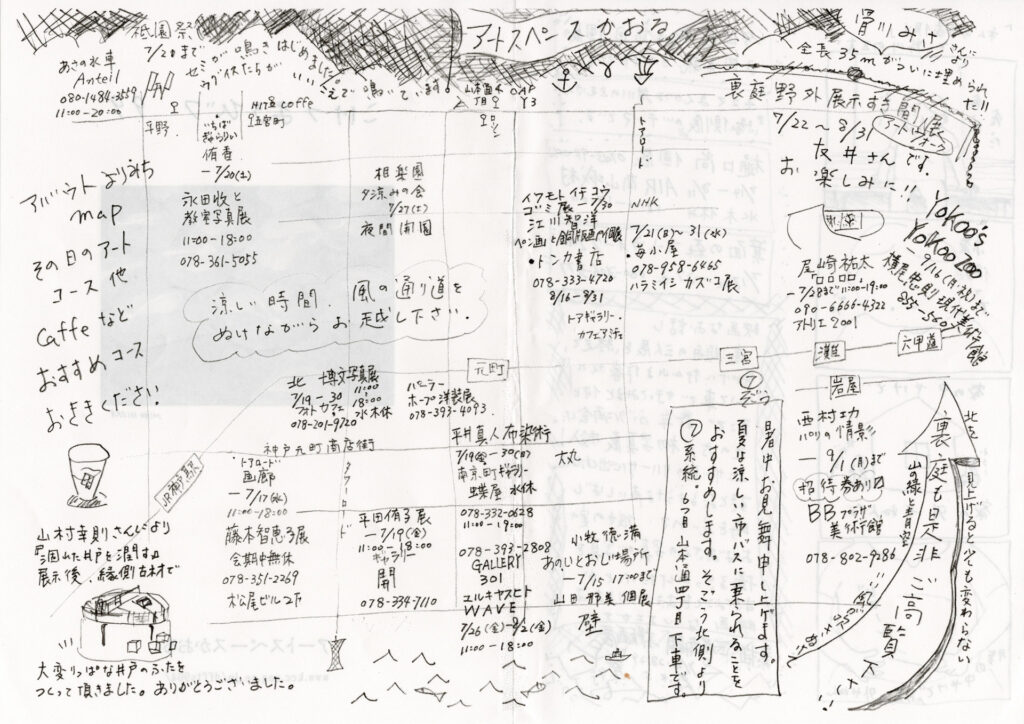 アートスペースかおる
祇園祭
7/20まで
セミが鳴きはじめました。
ウグイスたちが
鳴いています。
あさの水車
Anteil
080-1484-3559
11:00-20:00
平野
いちば
ぎゃらりぃ
侑香
ー7/20(土)
coffe
五宮町
トアロード
さんにより
全長35mがついに埋められた!!
裏庭野外展示すき間展
アートウォーク
7/22〜8/31
友井さんです。
お楽しみに!!
アバウトよりみち
map
その日のアート
コース 他
Caffeなど
おすすめコース
おききください
永田收と
教室写真展
11:00-18:00
078-361-5055
相楽園
夕涼みの会
7/27(土)
夜間開園
イワモトイチコウ
ゴミ展ー7/30
江川智洋
ペン画と銅版画の個展
・トンカ書店
078-333-4720
8/16-8/31
トアギャラリー・
カフェ
NHK
7/21(日)〜31(水)
・毎小屋
078-958-6465
ハラミイシカズコ展
尾崎祐太
「品品品品」
ー7/28まで11:00-19:00
090-6666-4322
アトリエ2001
Yokoo's
YokooZoo
ー9/16(月・秋)まで
横尾忠則現代美術館
855-5607
涼しい時間、風の通り道を
ぬけながらお越し下さい。
元町
三宮
灘
六甲道
岩屋
北 博文写真展
7/19-30
11:00-18:00
フォトカフェ
水木休
078-201-9720
バニラー
ホープ洋裝展
078-393-4093
神戸元町商店街
JR神戸駅
トアロード
画廊
ー7/17(水)
11:00-18:00
藤本智恵子展
会期中無休
078-351-2269
松屋ビル2F
タワーロード
平田侑子展
ー7/19(金)
11:00-18:00
ギャラリー
開
078-334-7110
平井真人布染術
7/19(金)-30(日)
南京町ギャラリー
蝶屋 水休
078-332-0628
11:00-19:00
078-393-2808
GALLERY
301
エルキヤスヒト
WAVE
7/26(金)-8/2(金)
大丸
小牧徳満
あのひとおじい場所
ー7/15 17:00まで
山田那美個展
壁
⑦
そごう
暑中お見舞申し上げます。
夏は涼しい市バスに乗られることを
おすすめします。そごう北側より
⑦系統・6つ目山本通四丁目下車です。
西村功
パリの情影
ー9/1(月)まで
招待券あり〼
BBプラザ
美術館
078-802-9286
北を見上げると少しも変わらない
山の緑と青空
裏庭も是非ご高覧下さい!
山村幸則さくしにより
展示後、縁側古材で
大変りっぱな井戸のふたを
つくって頂きました。ありがとうございました。